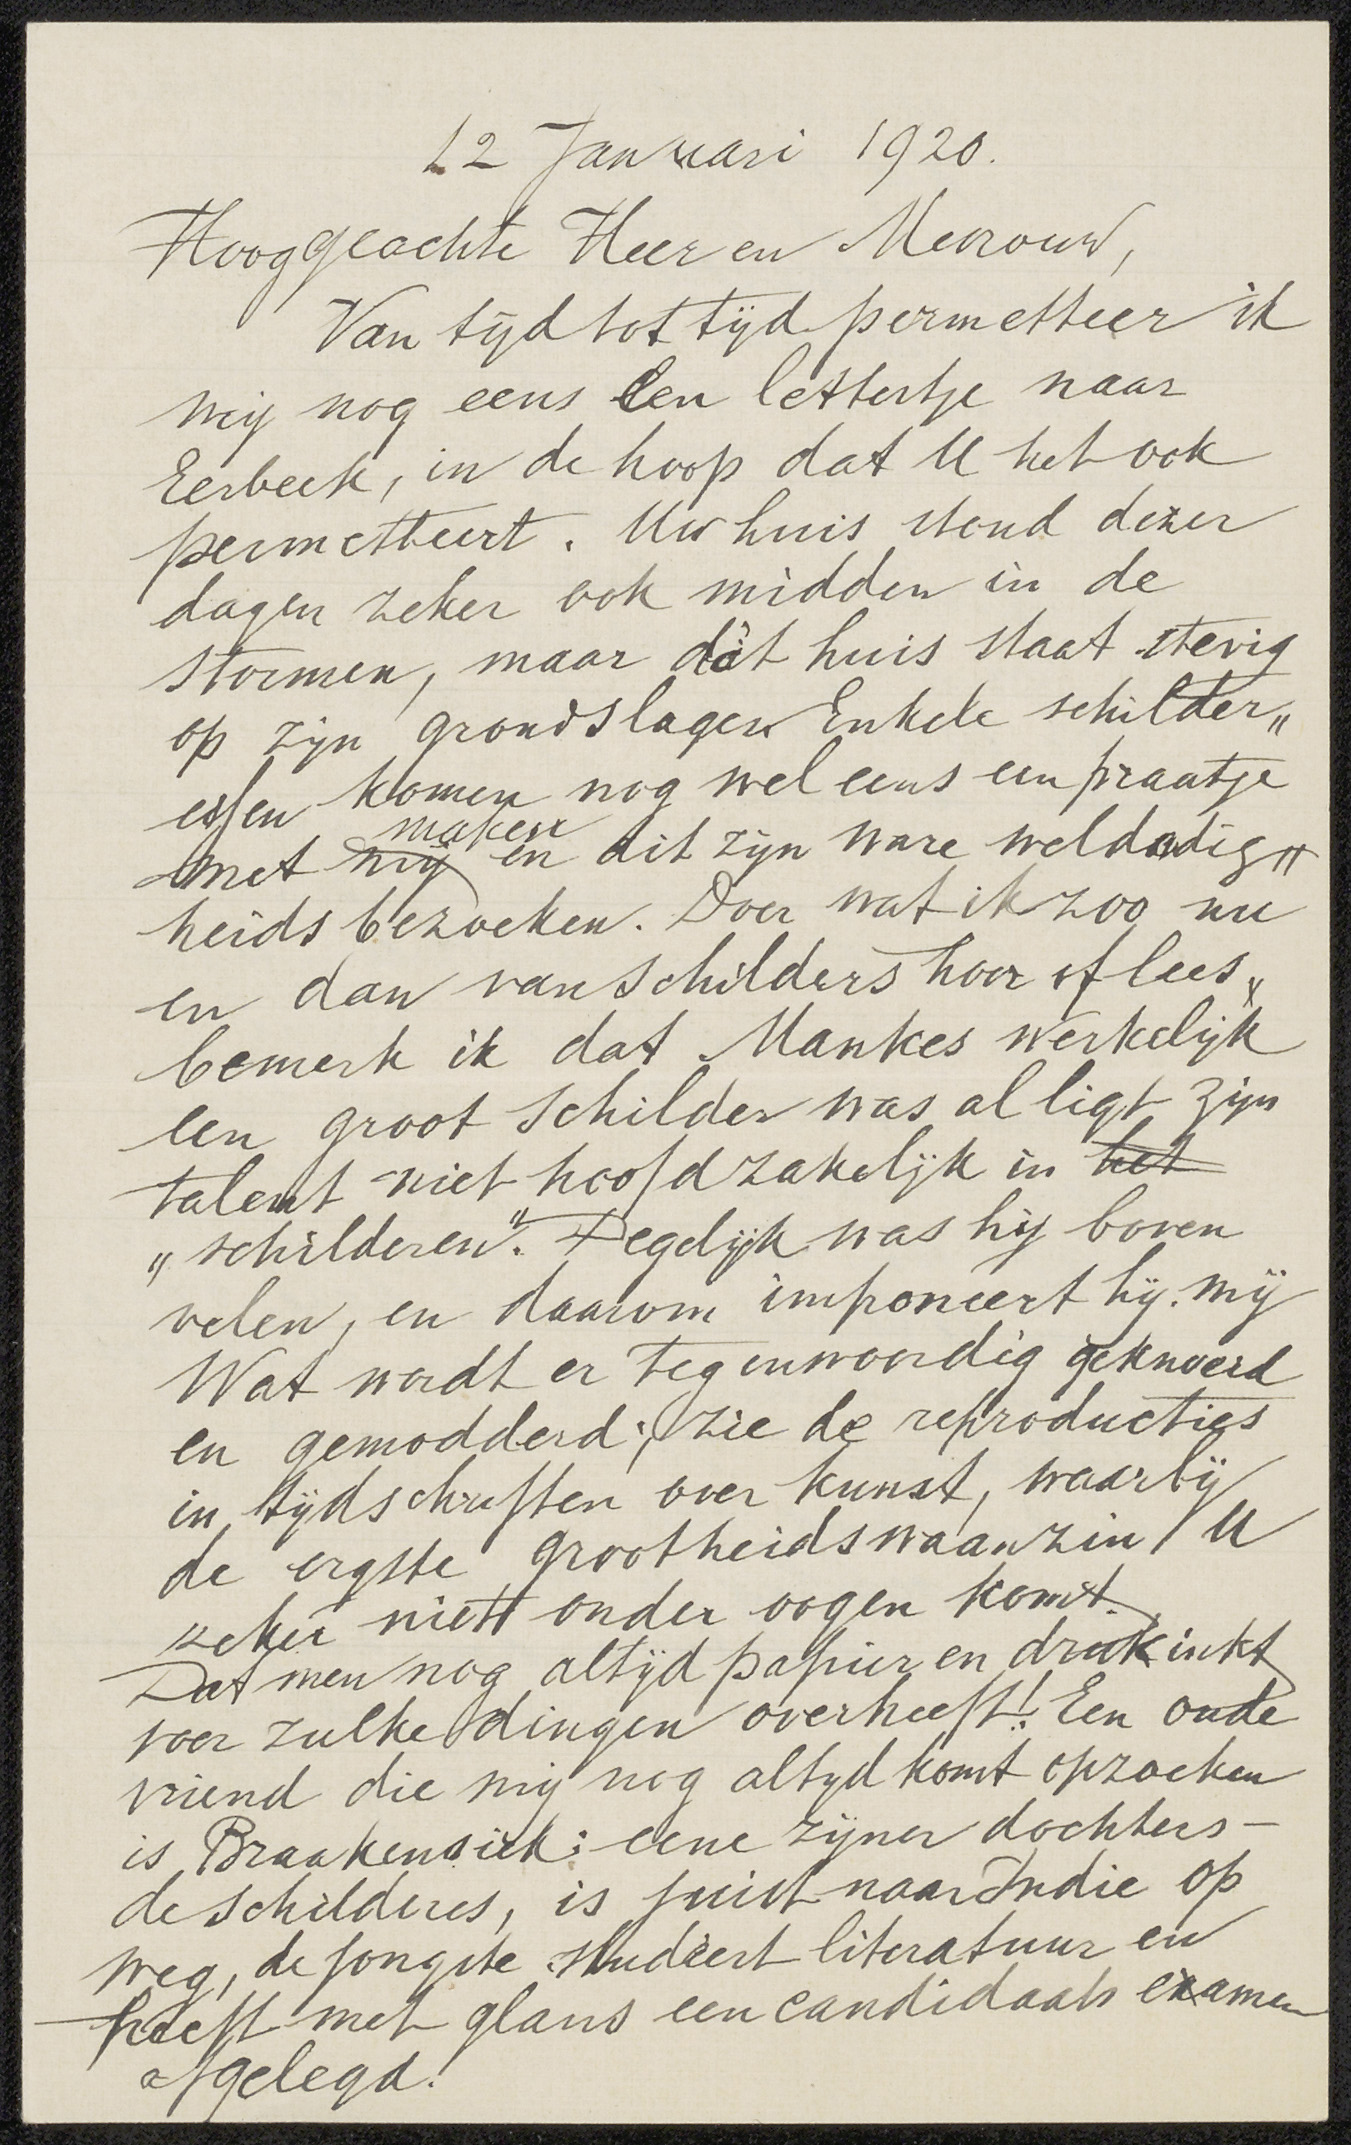 12 Januari 1920.
Hooggeachte Heer en Mevrouw,
Van tijd tot tijd permetteer ik
mij nog eens een lettertje naar
Eerbeek, in de hoop dat U het ook
permetteert. Uw huis stond dezer
dagen zeker ook midden in de
stormen, maar dàt huis staat stevig
op zijn grondslagen Enkele schilder„
essen komen nog wel eens een praatje
maken
met mij en dit zijn ware weldadig„
heids bezoeken. Door wat ik zoo nu
en dan van schilders hoor of lees,
bemerk ik dat Mankes werkelijk
een groot schilder was al ligt zijn
talent niet hoofdzakelijk in het
„schilderen". Degelijk was hij boven
velen, en daarom imponeert hij mij
Wat wordt er tegenwoordig geknoeid
en gemodderd; zie de reproducties
in tijdschriften over kunst, waarbij
de ergste grootheidswaanzin U
zeker niet onder oogen komt.
Dat men nog altijd papier en drukinkt
voor zulke dingen overheeft! Een oude
vriend die mij nog altijd komt opzoeken
is Braakensiek: eene zijner dochters -
de schilderes, is juist naar Indie op
weg, de jongste studeert literatuur en
heeft met glans een candidaats examen
afgelegd.